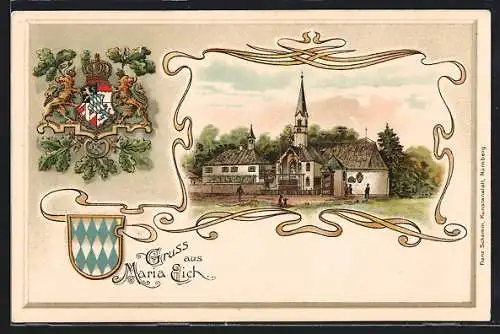 Gruss
aus
Maria Eich
Franz Schemm, Kunstanstalt, Nürnberg.